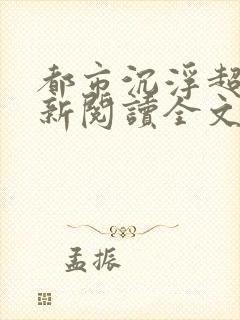 都市沉浮超
新閱讀全文
孟振